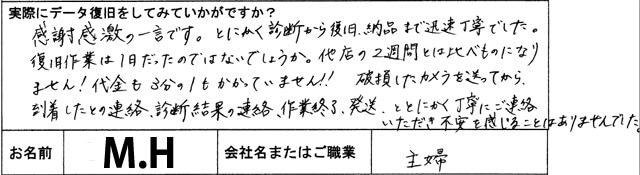 実際にデータ復旧をしてみていかがですか?
感謝感激の一言です。とにかく診断から復旧、納品まで迅速丁寧でした。
復旧作業は1日だったのではないでしょうか。他店の2週間とは比べものになり
ません!代金も3分の1もかかっていません!! 破損したカメラを送ってから、
到着したとの連絡、診断結果の連絡、作業終了、発送、ととにかく丁寧にご連絡
いただき不安を感じることはありませんでした。
お名前 M.H 会社名またはご職業 主婦